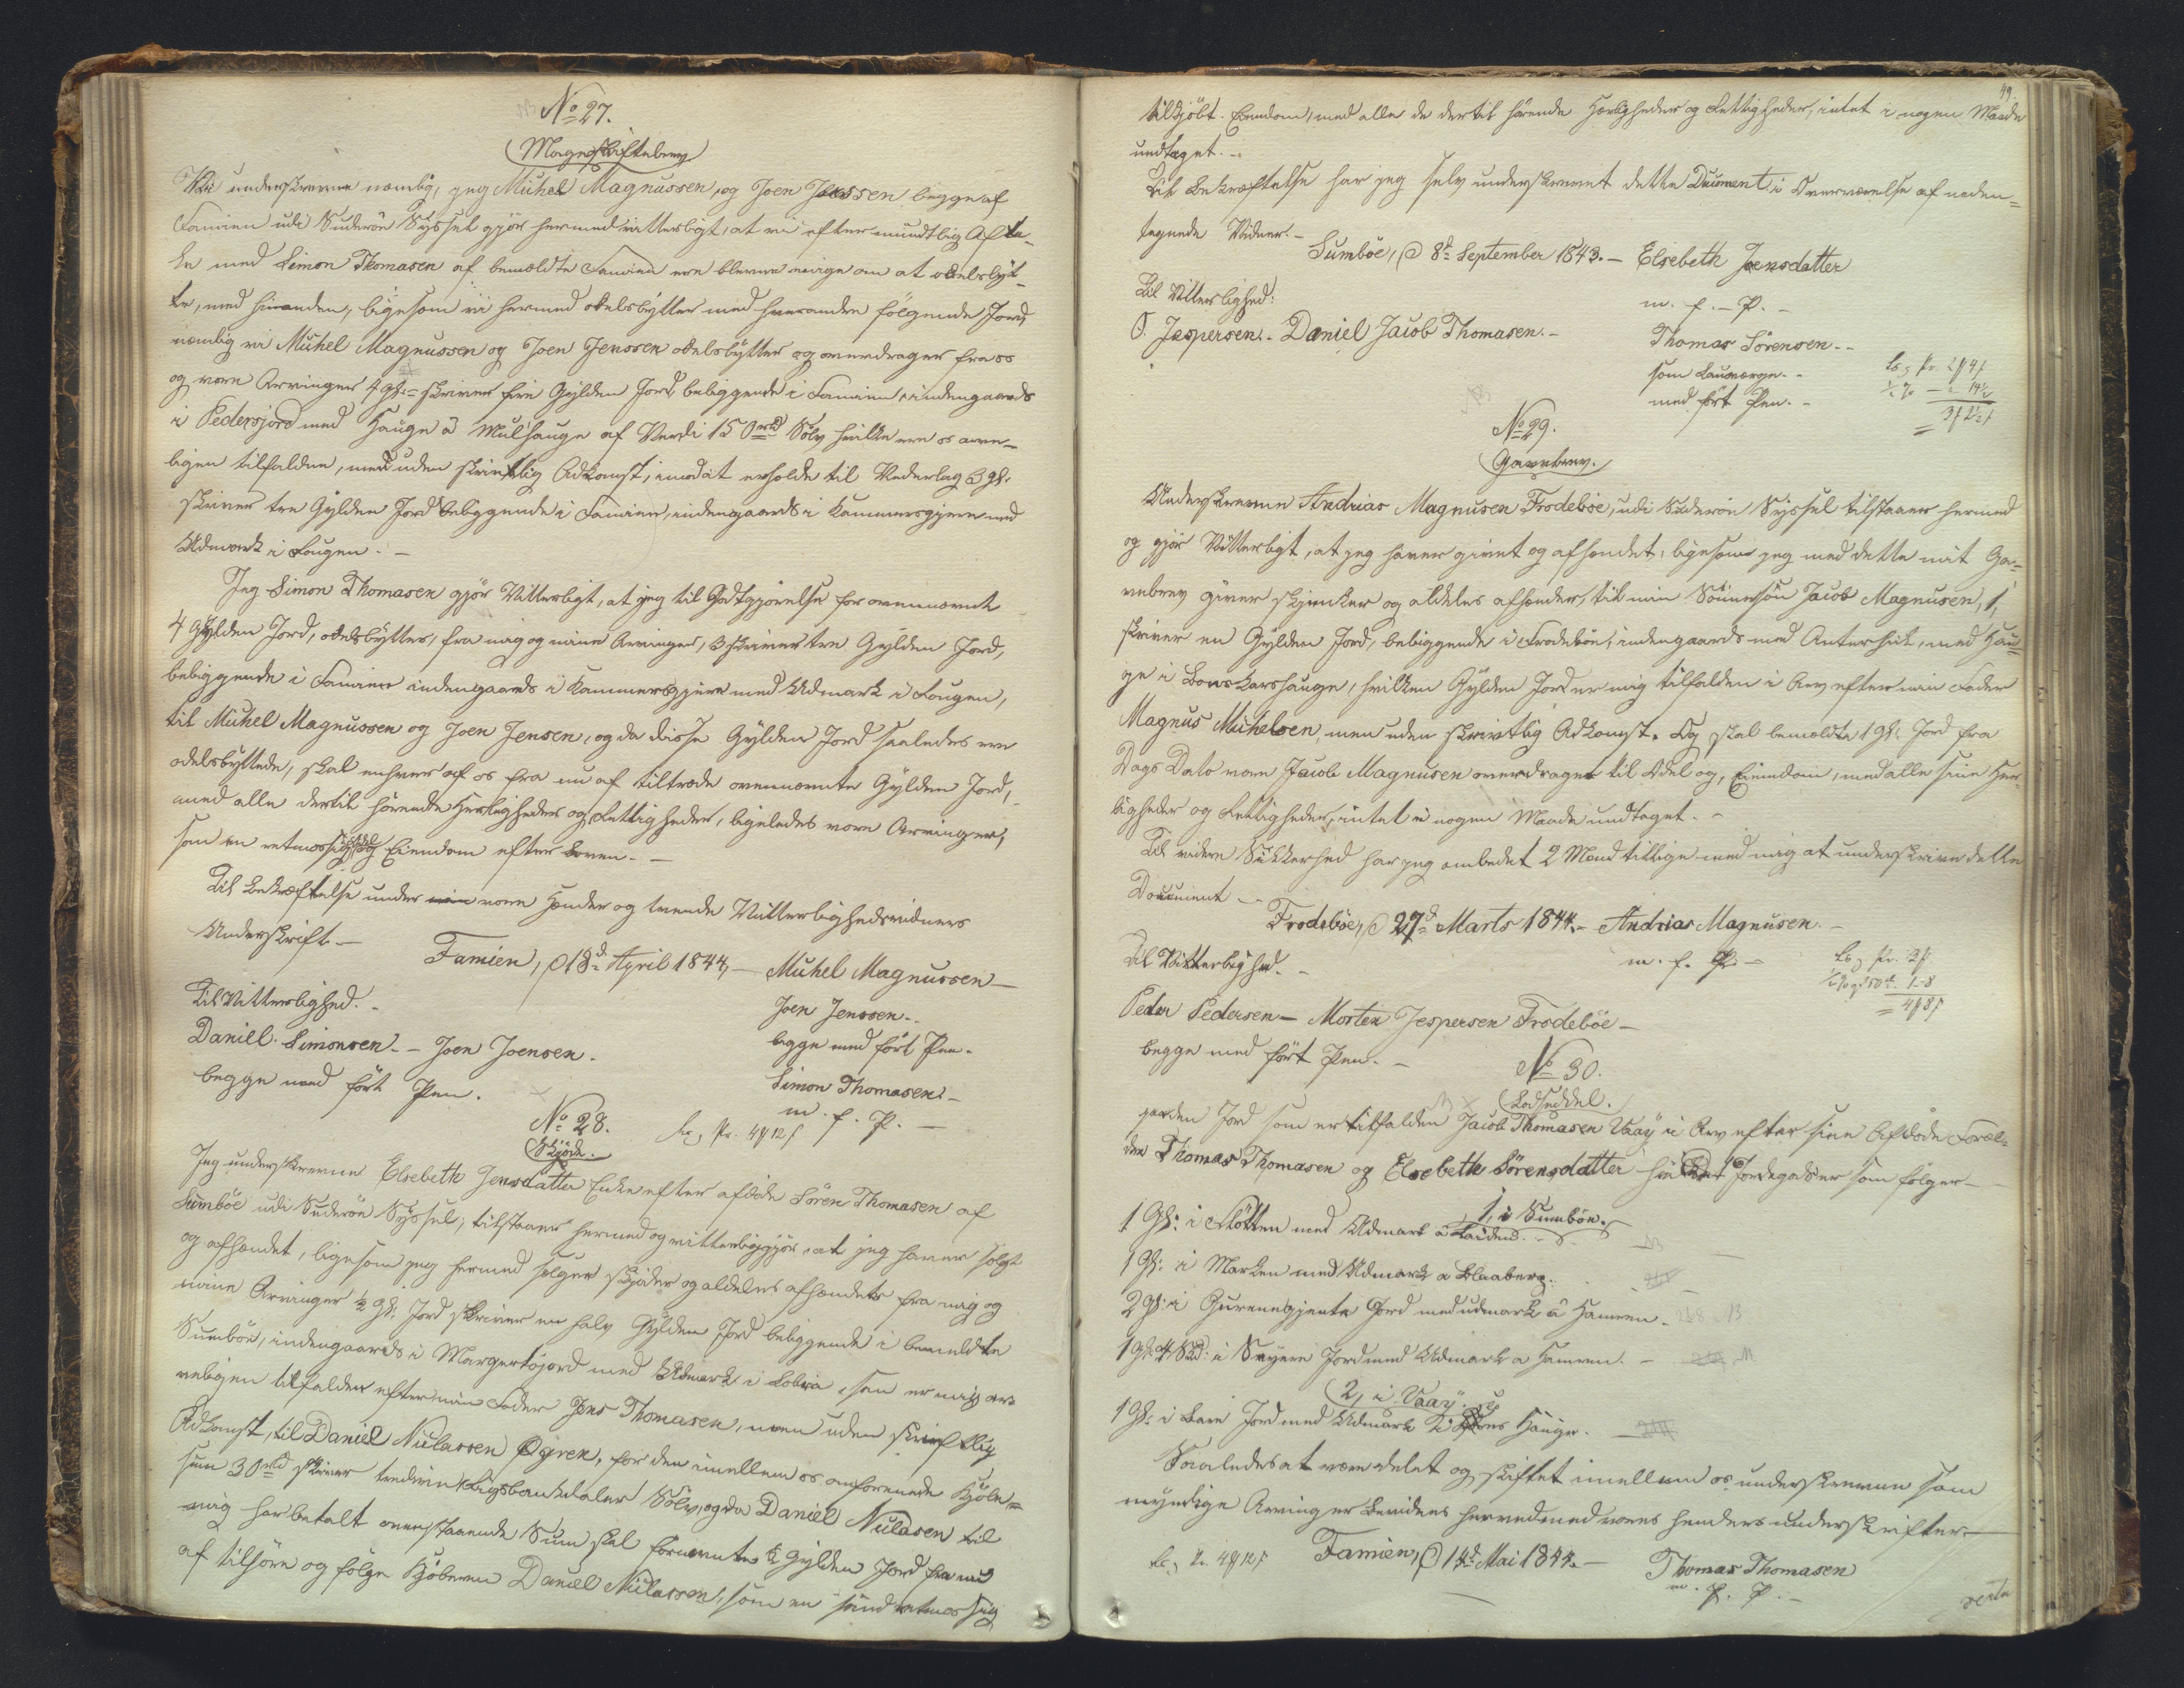 No 27.
Mageskiftebrev
Vi underskrevne nemlig, jeg Michel Magnussen, og Joen Jenssen begge af
Famien udi Suderöe Syssel gjör hermed vitterligt, at vi efter mundtlig Afta-
le med Simon Thomasen af bemeldte Famien ere blevne enige om at odelsbyt-
te, med hinanden, ligesom vi hermed odelsbytter med hverandre fölgende Jord,
nemlig vi Michel Magnussen og Joen Jenssen odelsbytter og overdrager fra os
og vore Arvinger 4 Gl. skriver fire Gylden Jord beliggende i Famien, indengaards
i Pedersjord med Hauge á Mulhauge af Verdi 150 rbd Sölv hvilke ere os arve-
ligen tilfaldne, men uden skrivtlig Adkomst, imod at erholde til Vederlag 3 Gl.
skriver tre Gylden Jord beliggende i Famien, indengaards i Kammersgjere med
Udmark i Lougen. —
Jeg Simon Thomasen gjör Vitterligt, at jeg til Godtgjörelse for ovennevnte
4 Gylden Jord, odelsbytter, fra mig og mine Arvinger, 3 skriver tre Gylden Jord,
beliggende i Famien indengaards i Kammersgjere med Udmark i Lougen,
til Michel Magnussen og Joen Jensen, og da disse Gylden Jord saaledes ere
odelsbyttede, skal enhver af os fra nu af tiltræde ovennevnte Gylden Jord,
med alle dertil hörende Herligheder og Rettigheder, ligeledes vore Arvinger,
som en retmessig Odel og Eiendom efter Loven. —
Til Bekræftelse under vore Hænder og tvende Vitterlighedsvidners
Underskrift. —
Famien, d 18d April 1844, — Michel Magnussen —
Til Vitterlighed. —
Joen Jenssen. -
Daniel Simonsen. — Joen Joensen.
begge med fört Pen.
begge med fört Pen.
Simon Thomasen. —
m. f. P. —
No 28.
Skjöde.
Jeg underskrevne Elsebeth Jensdatter Enke efter afdöde Sören Thomasen af
Sumböe udi Suderöe Syssel, tilstaaer hermed og vitterliggjör, at jeg haver solgt
og afhændet, ligesom jeg hermed sælger skjöder og aldeles afhænder fra mig og
mine Arvinger ½ Gl. Jord skriver en halv Gylden Jord beliggende i bemeldte
Sumböe, indengaards i Margretöjord med Udmark i Lobra, som er mig ar-
veligen tilfalden efter min Fader Jens Thomasen, men uden skriftlig
Adkomst, til Daniel Niclassen Ögren, for den imellem os omforenede Kjöbe-
sum 30 rbd skriver tredive Rigsbankdaler Sölv, og da Daniel Niclasen til
mig har betalt ovenstaaende Sum skal fornevnte ½ Gylden Jord fra nu
af tilhöre og fölge Kjöberen Daniel Niclassen, som en sand retmessig
49.
tilkjöbt Eiendom, med alle de dertil hörende Herligheder og Rettigheder, intet i nogen Maade
undtaget. —
Til Bekræftelse har jeg selv underskrevet dette Document i Overværelse af neden-
tegnede Vidner. —
Sumböe, d 8d September 1843. — Elsebeth Jensdatter
m. f. — P. —
Til Vitterlighed:
O. Jespersen. - Daniel Jacob Thomasen. —
Thomas Sörensen. -
som Laugværge. -
med fört Pen. -
No 29.
Gavebrev.
Underskrevne Andrias Magnusen Frodeböe, udi Suderöe Syssel tilstaaer hermed
og gjör Vitterligt, at jeg haver givet og afhændet, ligesom jeg med dette mit Ga-
vebrev giver skjenker og aldeles afhender, til min Sönnesön Jacob Magnusen, 1,
skriver en Gylden Jord, beliggende i Frodeböe, indengaards med Anterhuk, med Hau-
ge i Bonskarshauge, hvilken Gylden Jord er mig tilfalden i Arv efter min Fader
Magnus Michelsen, men uden skrivtlig Adkomst. Og skal bemeldte 1 Gl. Jord fra
Dags Dato være Jacob Magnusen overdraget til Odel og Eiendom, med alle sine Her-
ligheder og Rettigheder, intet i nogen Maade undtaget. —
Til videre Sikkerhed har jeg ombedet 2 Mænd tillige med mig at underskrive dette
Document —
Frodeböe, d 27d Marts 1844. — Andrias Magnusen. —
m. f. P. —
Til Vitterlighed. —
Peder Pedersen — Morten Jespersen Frodeböe —
begge med fört Pen. —
No 30.
Lodseddel.
paa den Jord som er tilfalden Jacob Thomasen Vaag i Arv efter sine Afdöde Foræl-
dre Thomas Thomasen og Elsebeth Sörensdatter Jordegods er som fölger —
1, i Sumböe.
1 Gl: i Slötten med Udmark a
1 Gl: i Marken med Udmark a Blaaberg.
2 Gl: i Gurenegjente Jord med udmark á Hamren. —
1 Gl: 4 Skd: i Nyere Jord med Udmark a Hamren. —
2, i Vaag.
1 Gl: i Jord med Udmark Hauge.
Saaledes at være delet og skiftet imellem os underskrevne som
myndige Arvinger bevidnes herved med vores henders underskrifter —
Famien, d 14d Mai 1844. — Thomas Thomasen
m. f. P. —
verte